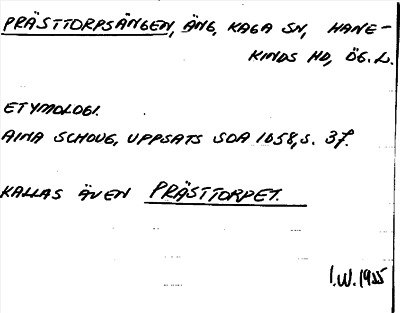 PRÄSTTORPSÄNGEN, ÄNG, KAGA SN, HANE-
KINDS HD, ÖG. L.
ETYMOLOGI.
AINA SCHOUG, UPPSATS SOA 1058, S. 37.
KALLAS ÄVEN PRÄSTTORPET.
I.W. 1955